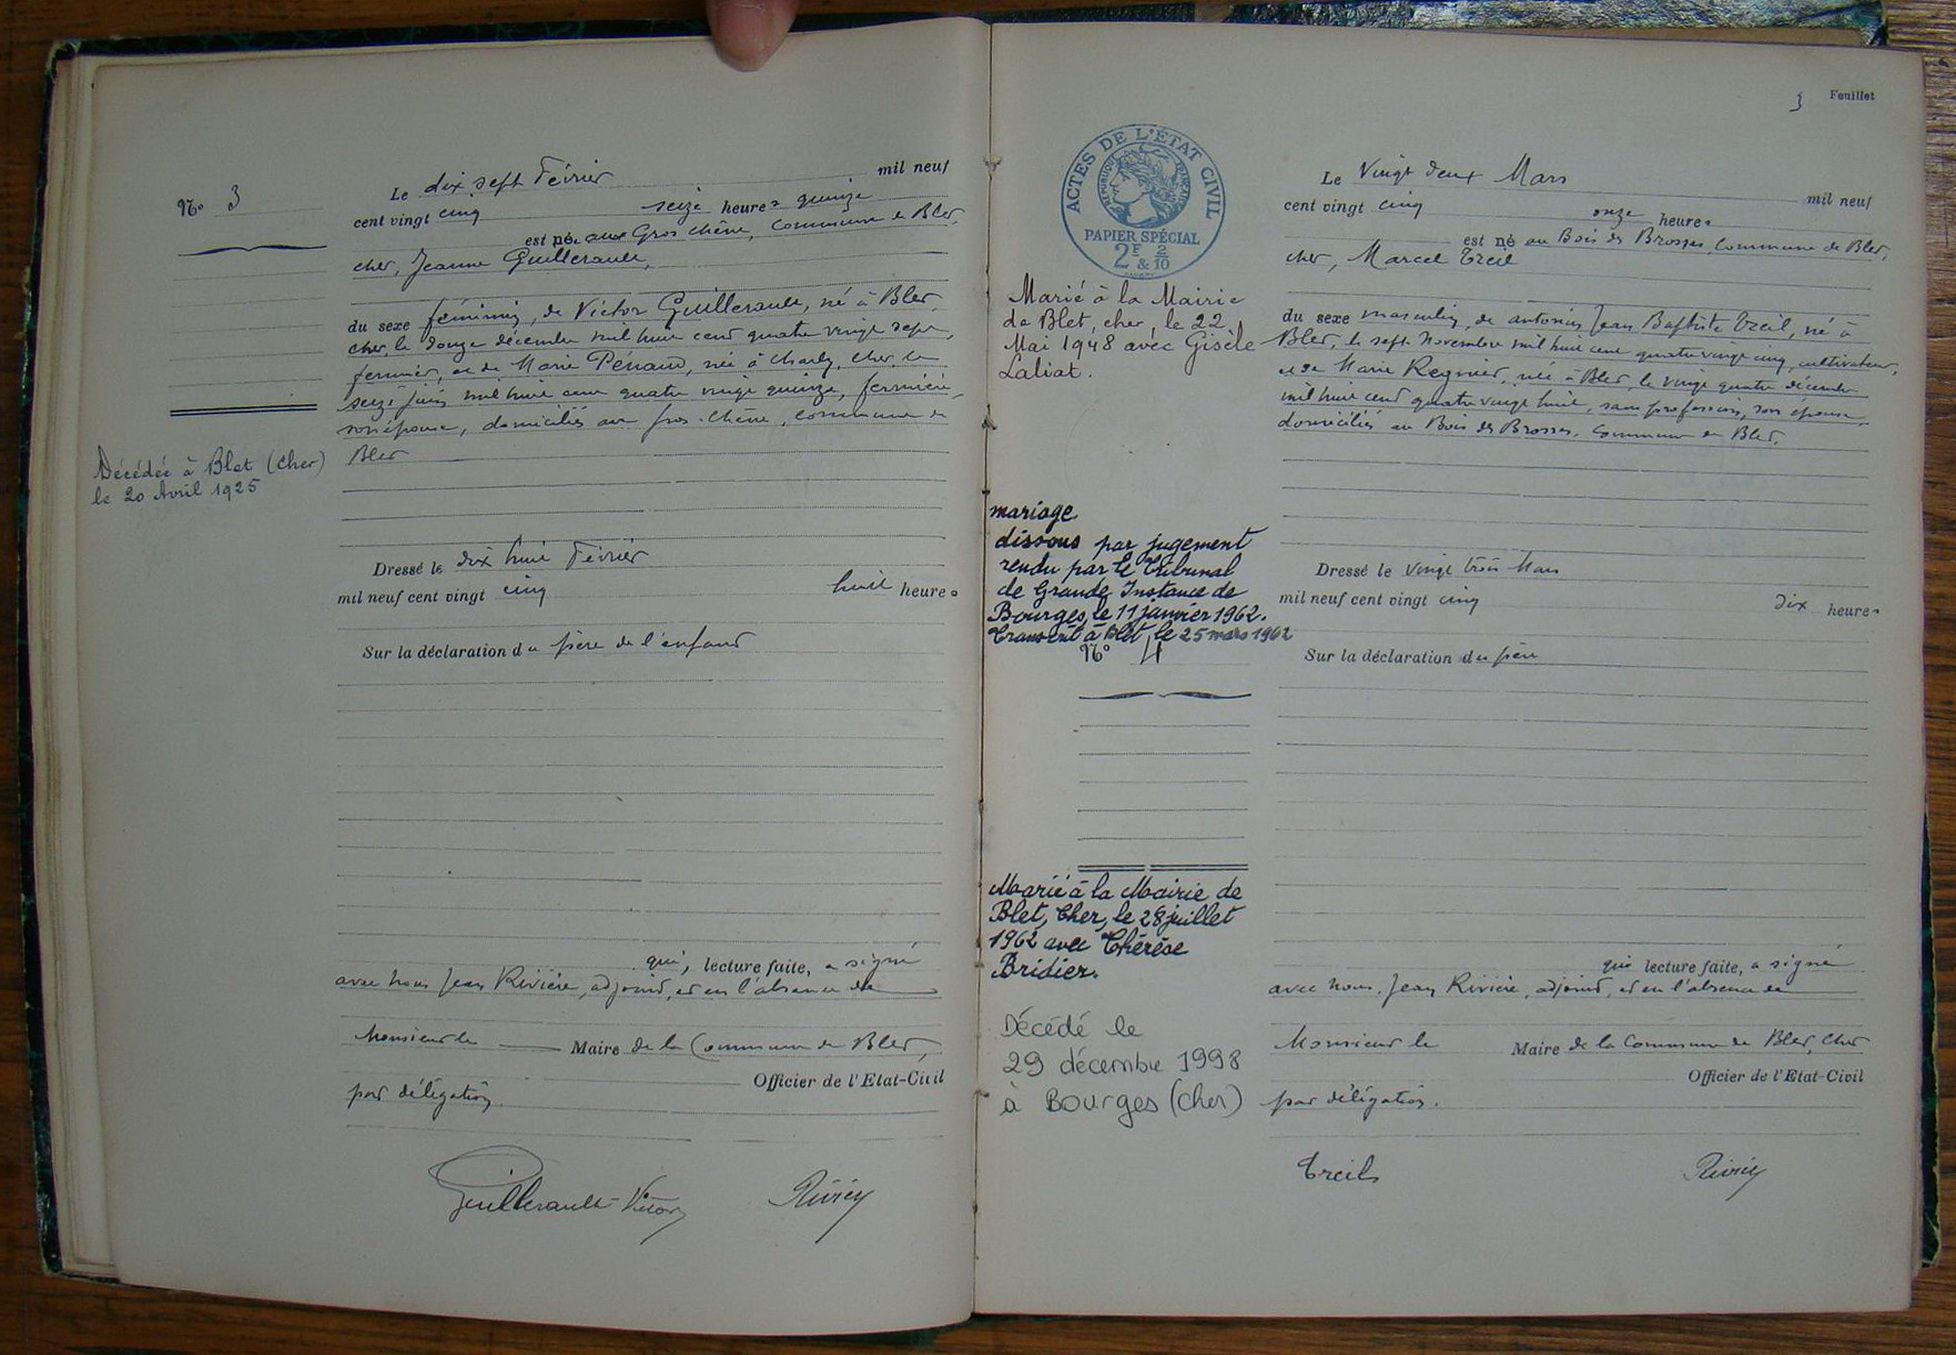 No 3
Le dix sept Février mil neuf
cent vingt cinq seize heures quinze
est née aux Gros chêne, Commune de Blet,
cher, Jeanne Guillerault,
du sexe féminin, de Victor Guillerault, né à Blet,
cher, le douze décembre mil huit cent quatre vingt sept,
fermier, et de Marie Pénaud, née à Charly, cher, le
seize juin mil huit cent quatre vingt quinze, fermière,
son épouse, domiciliés au gros-chêne, commune de
Blet
Décédée à Blet (Cher)
le 20 Avril 1925
Dressé le dix huit Février
mil neuf cent vingt cinq huit heures
Sur la déclaration du père de l'enfant
qui, lecture faite, a signé
avec nous Jean Rivière, adjoint, et en l'absence de
Monsieur le Maire de la Commune de Blet,
Officier de l'Etat-Civil
par délégation.
Guillerault Victor Rivière
3 Feuillet
ACTES DE L'ÉTAT CIVIL
RÉPUBLIQUE FRANÇAISE
PAPIER SPÉCIAL
2F & 2/10
Marié à la Mairie
de Blet, cher, le 22
Mai 1948 avec Gisèle
Laliat.
mariage
dissous par jugement
rendu par le Tribunal
de Grande Instance de
Bourges, le 11 janvier 1962.
Transcrit à Blet, le 25 mars 1962
No 4
Marié à la Mairie de
Blet, Cher, le 28 juillet
1962 avec Thérèse
Bridier.
Décédé le
29 décembre 1998
à Bourges (Cher)
Le Vingt deux Mars mil neuf
cent vingt cinq onze heures
est né au Bois des Brosses, Commune de Blet,
cher, Marcel Treil
du sexe masculin, de antonin Jean Baptiste Treil, né à
Blet, le sept Novembre mil huit cent quatre vingt cinq, cultivateur,
et de Marie Regnier, née à Blet, le vingt quatre décembre
mil huit cent quatre vingt huit, sans profession, son épouse,
domiciliés au Bois des Brosses, Commune de Blet.
Dressé le vingt trois Mars
mil neuf cent vingt cinq dix heures
Sur la déclaration du père
qui lecture faite, a signé
avec nous, Jean Rivière, adjoint, et en l'absence de
Monsieur le Maire de la Commune de Blet, Cher
Officier de l'Etat-Civil
par délégation.
Treil Rivière